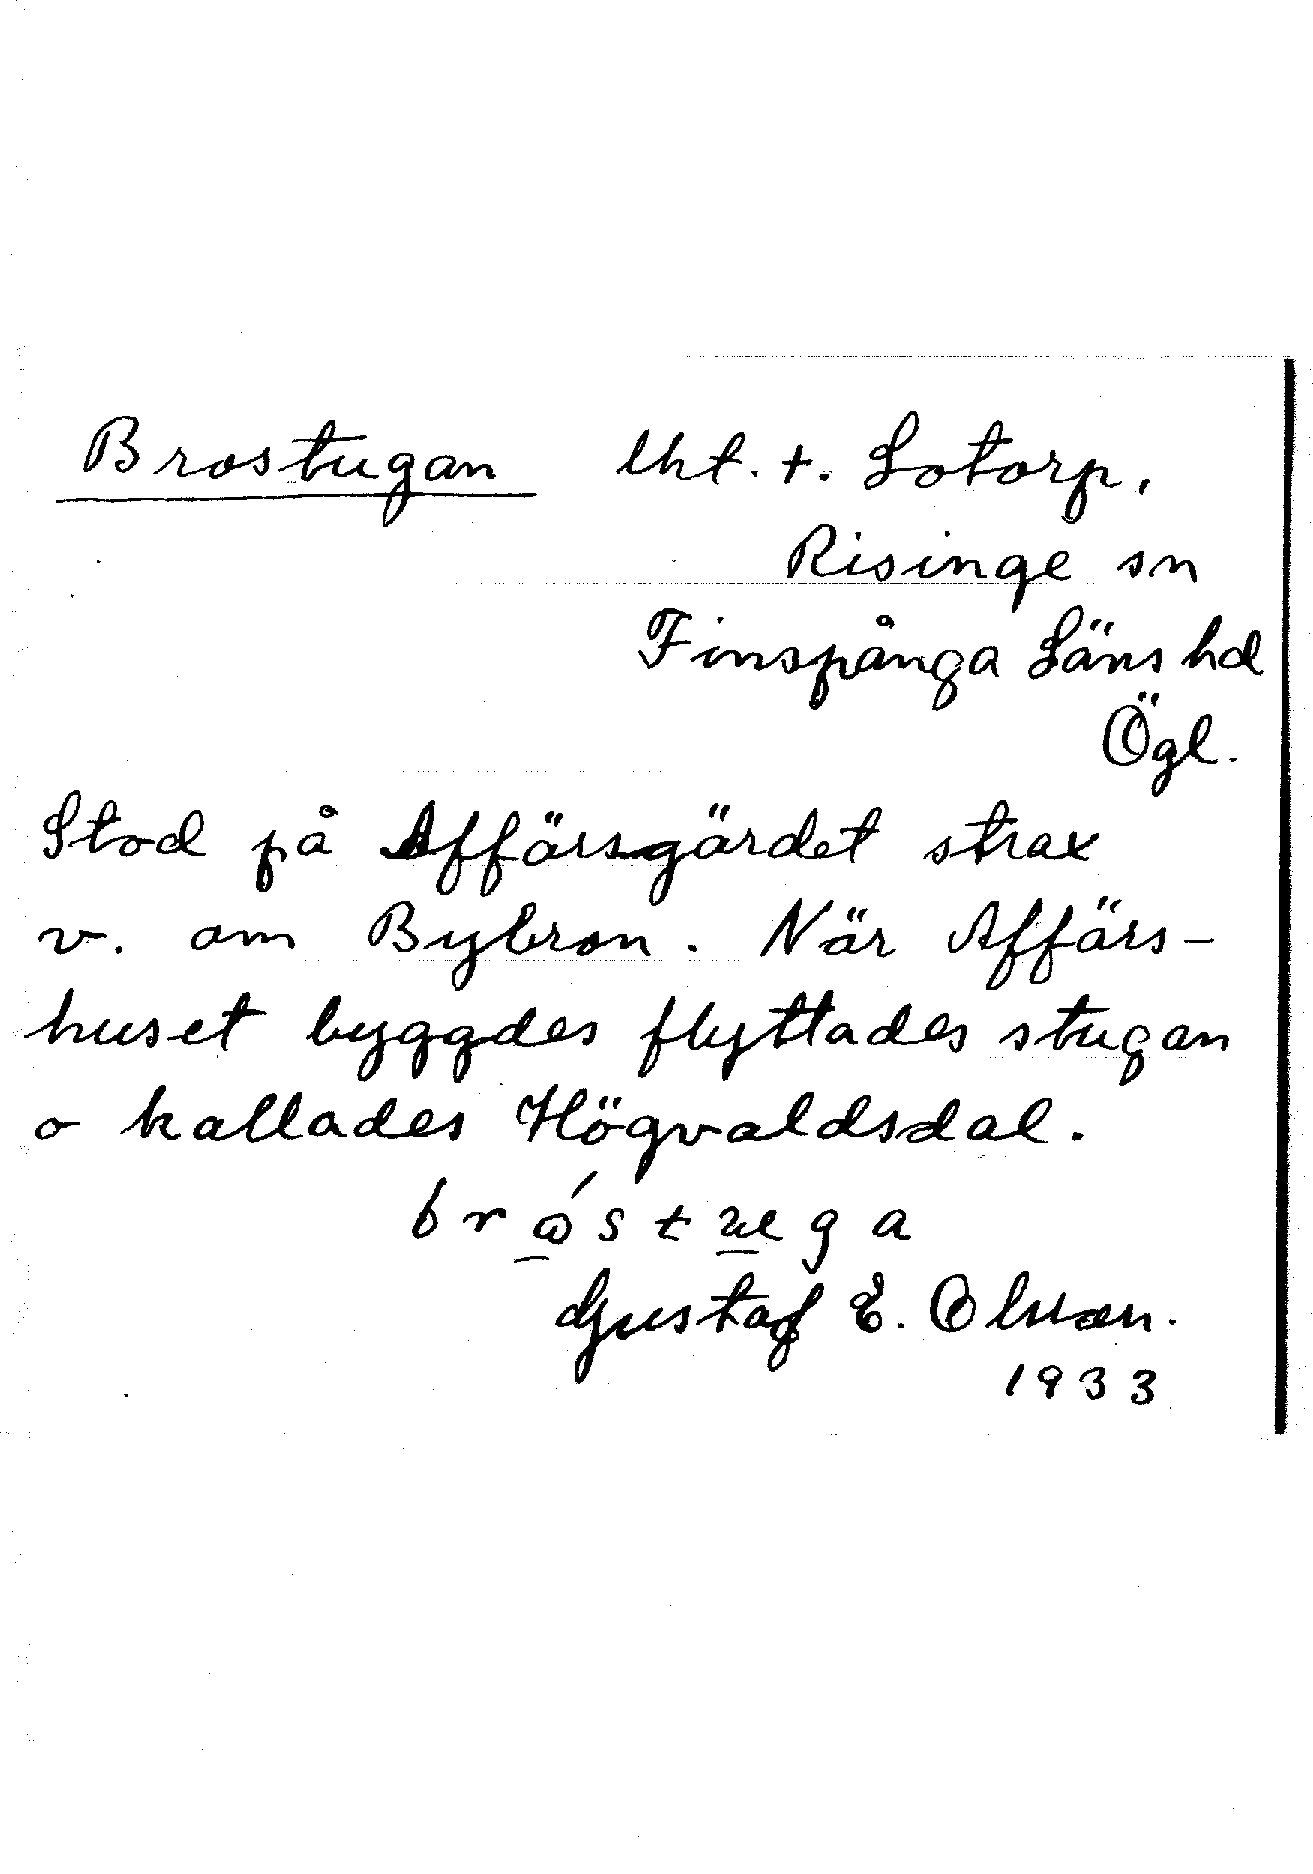 Brostugan lht. t. Lotorp,
Risinge sn
Finspånga Läns hd
Ögl.
Stod på Affärsgärdet strax
v. om Bybron. När Affärs-
huset byggdes flyttades stugan
o kallades Högvaldsdal.
Gustaf E. Olsson.
1933